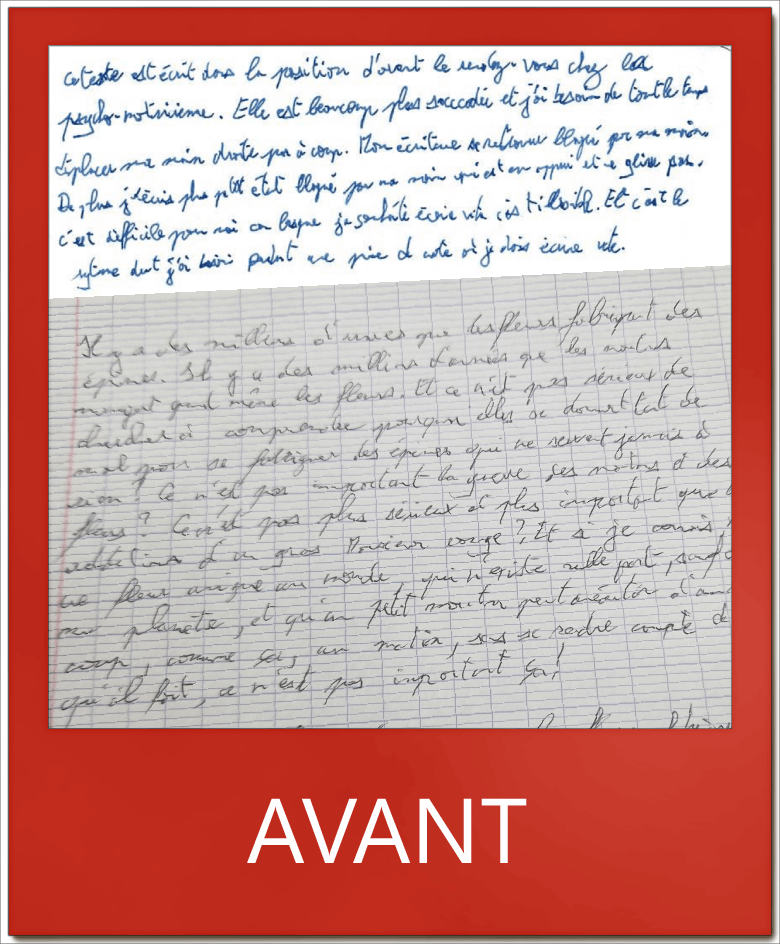 Ce texte est écrit dans la position d'avant le rendez-vous chez la
psycho-motricienne. Elle est beaucoup plus saccadée et j'ai besoin de tout le temps
déplacer ma main droite par à coup. Mon écriture se retrouve bloqué par ma main.
De plus j'écris plus petit et est bloqué par ma main qui est en appui et ne glisse pas.
c'est difficile pour moi car lorsque je souhaite écrire vite c'est illisible. Et c'est le
rythme dont j'ai besoin pendant une prise de note où je dois écrire vite.
Il y a des millions d'années que les fleurs fabriquent des
épines. Il y a des millions d'années que les moutons
mangent quand même les fleurs. Et ce n'est pas sérieux de
chercher à comprendre pourquoi elles se donnent tant de
mal pour se fabriquer des épines qui ne servent jamais à
rien? Ce n'est pas important la guerre des moutons et des
fleurs? Ce n'est pas plus sérieux et plus important que
additions d'un gros Monsieur rouge? Et si je connais
une fleur unique au monde, qui n'existe nulle part, sauf
ma planète, et qu'un petit mouton peut anéantir d'un
coup, comme ça, un matin, sans se rendre compte de
qu'il fait, ce n'est pas important ça!
AVANT